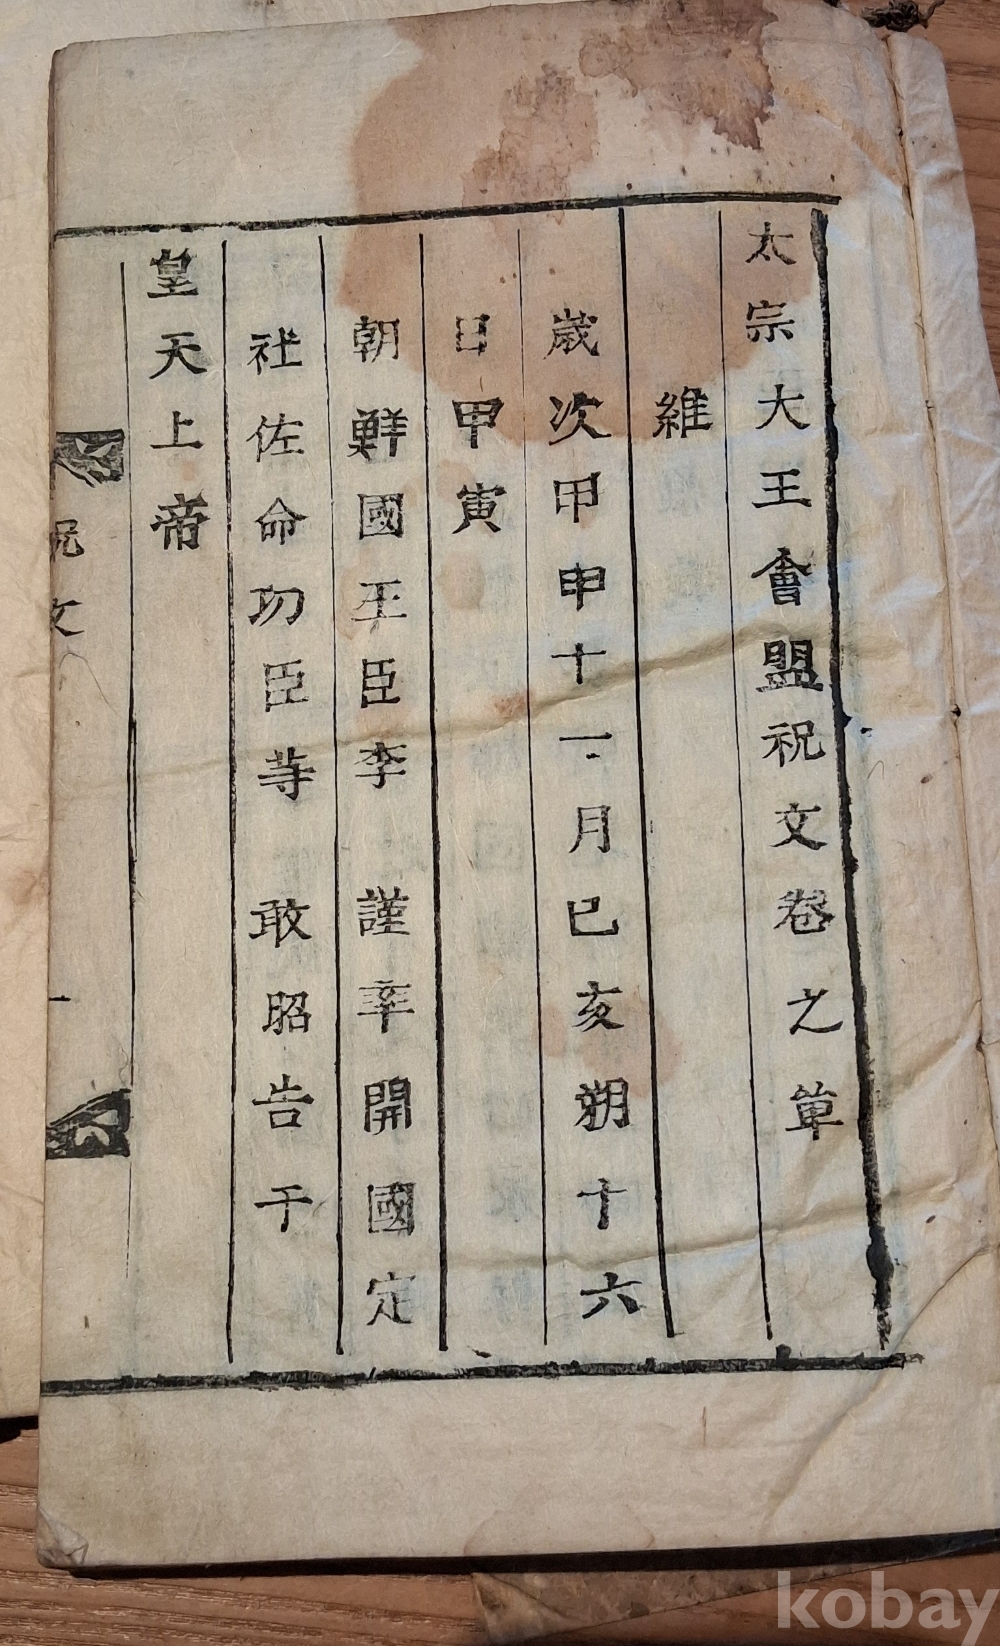 太宗大王會盟祝文卷之單
維
歲次甲申十一月己亥朔十六
日甲寅
朝鮮國王臣李 謹率開國定
社佐命功臣等 敢昭告于
皇天上帝
祝文
一
kobay